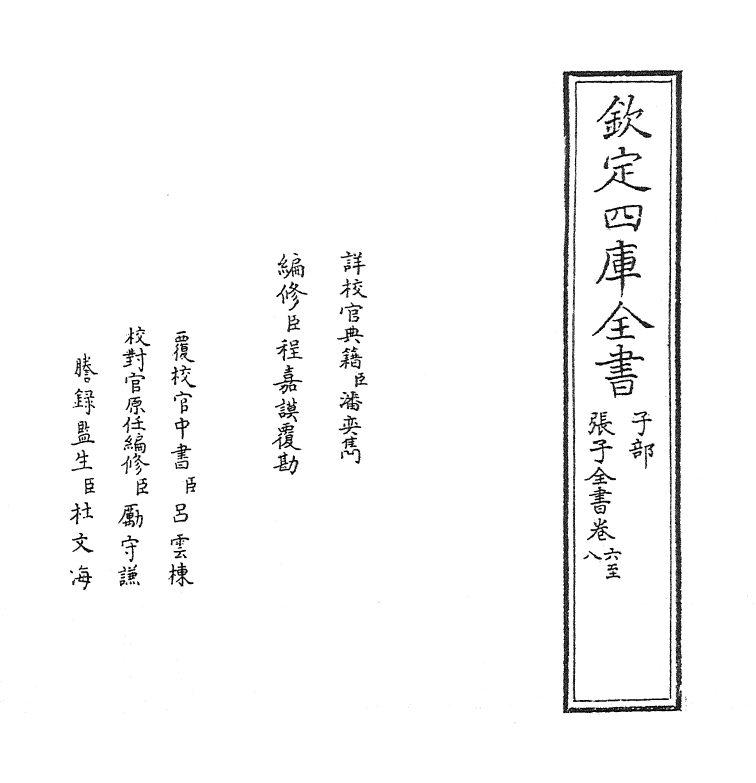 欽定四庫全書
子部
張子全書卷六至八
詳校官典籍臣潘奕雋
編修臣程嘉謨覆勘
覆校官中書臣呂雲棟
校對官原任編修臣勵守謙
謄録監生臣杜文海